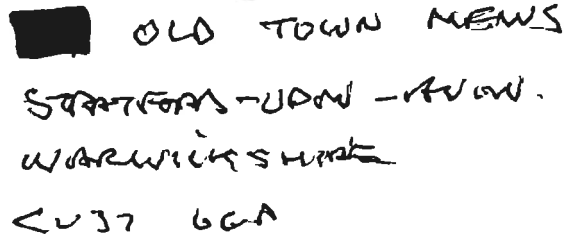 OLD TOWN MEWS
STRATFORD-UPON-AVON.
WARWICKSHIRE
CV37 6GA